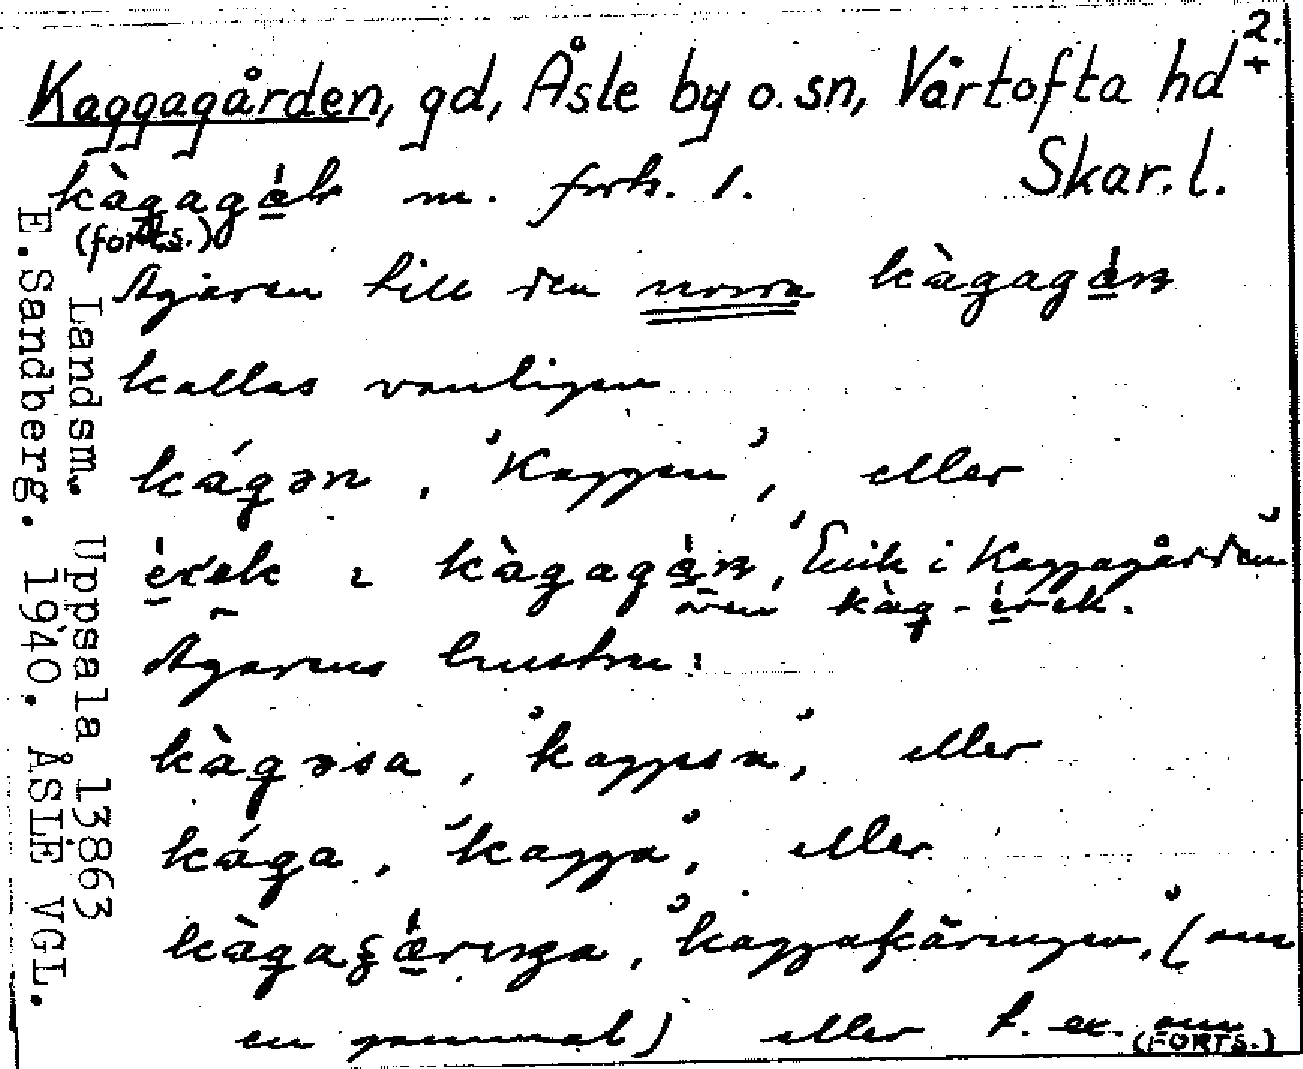 2.
Kaggagården, gd, Åsle by o. sn, Vartofta hd +
Skar. l.
kàgagáɽ m. forts. 1.
(forts.)
Ägaren till den norra kàgagáɳ
kallas vanligen
kágən, 'Kaggen', eller
érek i kàgagáɳ, 'Erik i Kaggagården'
även kàg-érek.
Ägarens hustru:
kàgəsa, 'kaggesa', eller
kága, 'kagga', eller
'kaggakäringen', (om
en gammal) eller t. ex. om
(FORTS.)
Landsm. Uppsala 13863
E. Sandberg. 1940. ÅSLE VGL.